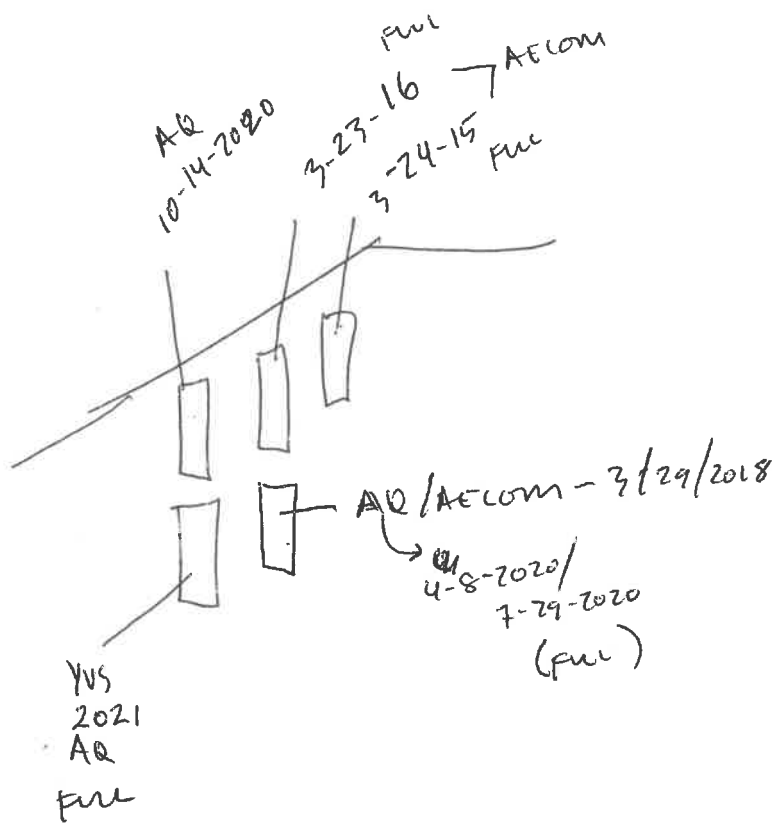 AQ
10-14-2020
FULL
3-23-16
AECOM
3-24-15
FULL
AQ/AECOM - 3/29/2018
4-8-2020/
7-29-2020
(FULL)
YVS
2021
AQ
FULL